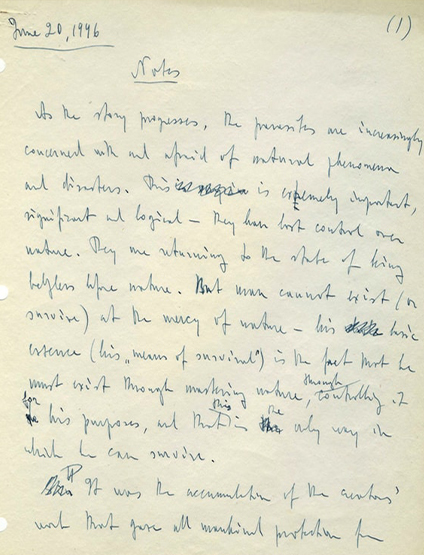 June 20, 1946
(1)
Notes
As the story progresses, the parasites are increasingly
concerned with and afraid of natural phenomena
and disasters. This is extremely important,
significant and logical — they have lost control over
nature. They are returning to the state of being
helpless before nature. But man cannot exist (or
survive) at the mercy of nature — his basic
essence (his „means of survival") is the fact that he
must exist through mastering nature, through controlling it
for his purposes, and that this is the only way in
which he can survive.
It was the accumulation of the creators'
work that gave all mankind protection from